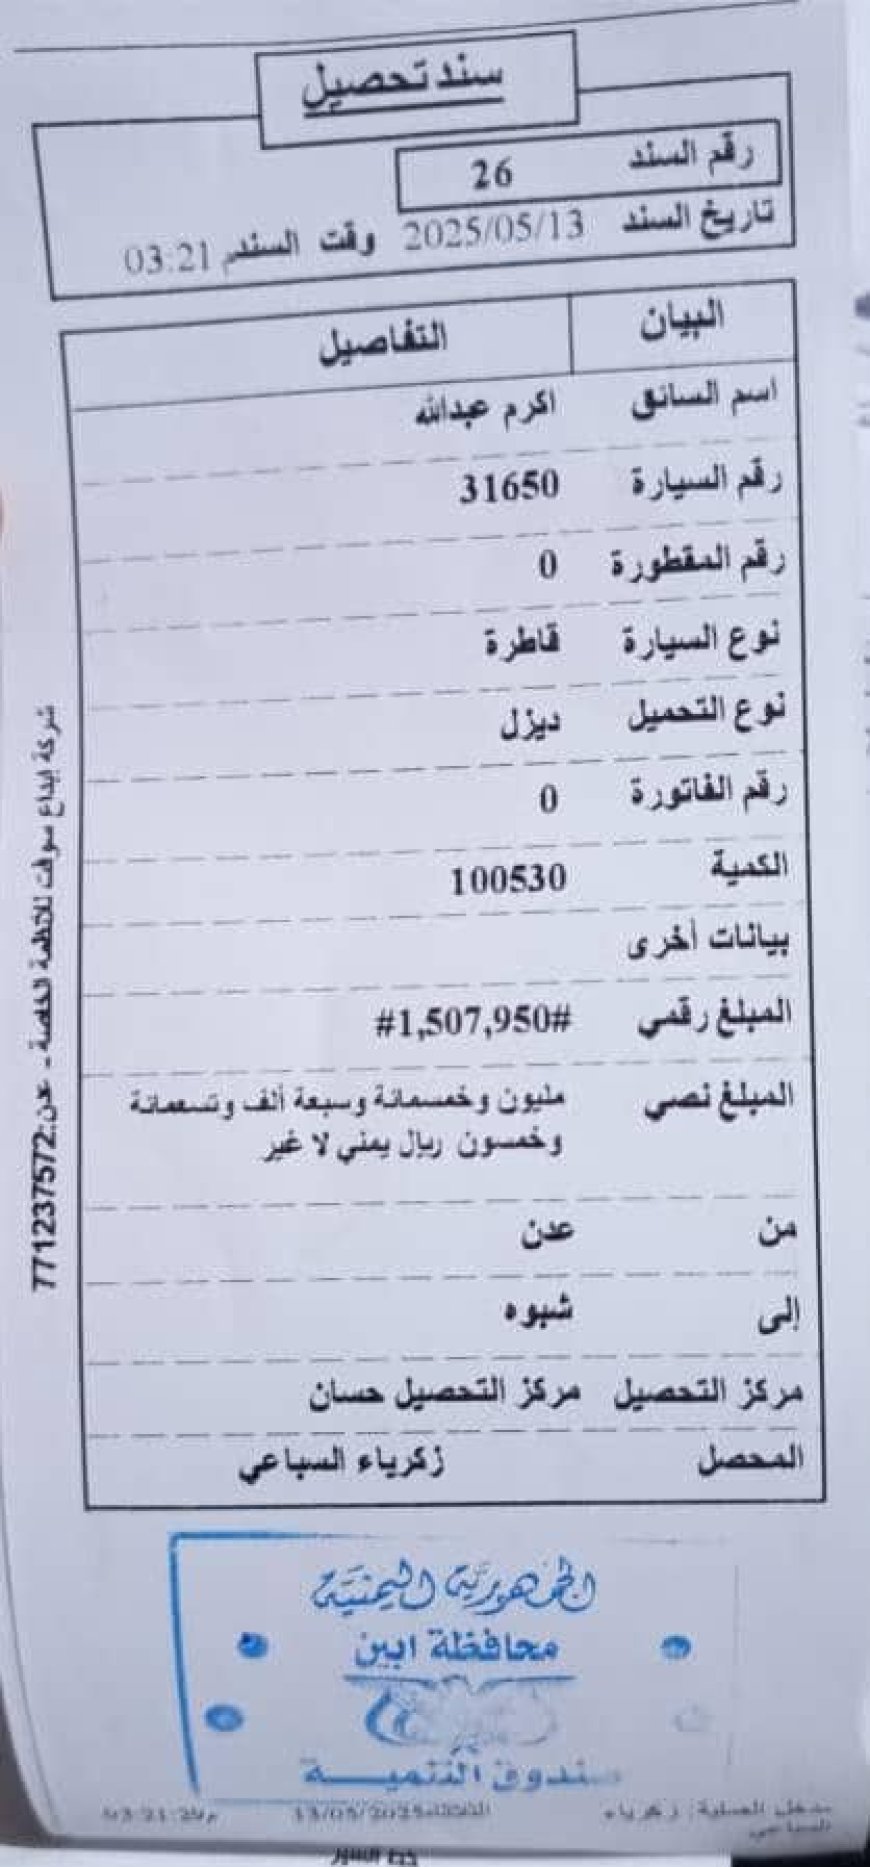 سند تحصيل
رقم السند 26
تاريخ السند 2025/05/13 وقت السند 03:21م
البيان التفاصيل
اسم السائق اكرم عبدالله
رقم السيارة 31650
رقم المقطورة 0
نوع السيارة قاطرة
نوع التحميل ديزل
رقم الفاتورة 0
الكمية 100530
بيانات أخرى
المبلغ رقمي #1,507,950#
المبلغ نصي مليون وخمسمائة وسبعة ألف وتسعمائة
وخمسون ريال يمني لا غير
من عدن
إلى شبوه
مركز التحصيل مركز التحصيل حسان
المحصل زكرياء السباعي
شركة ابداع سوفت للانظمة الخاصة - عدن:771237572
الجمهورية اليمنية
محافظة ابين
صندوق التنمية
مدخل العملية: زكرياء
السباعي
الثلاثاء 13/05/2025